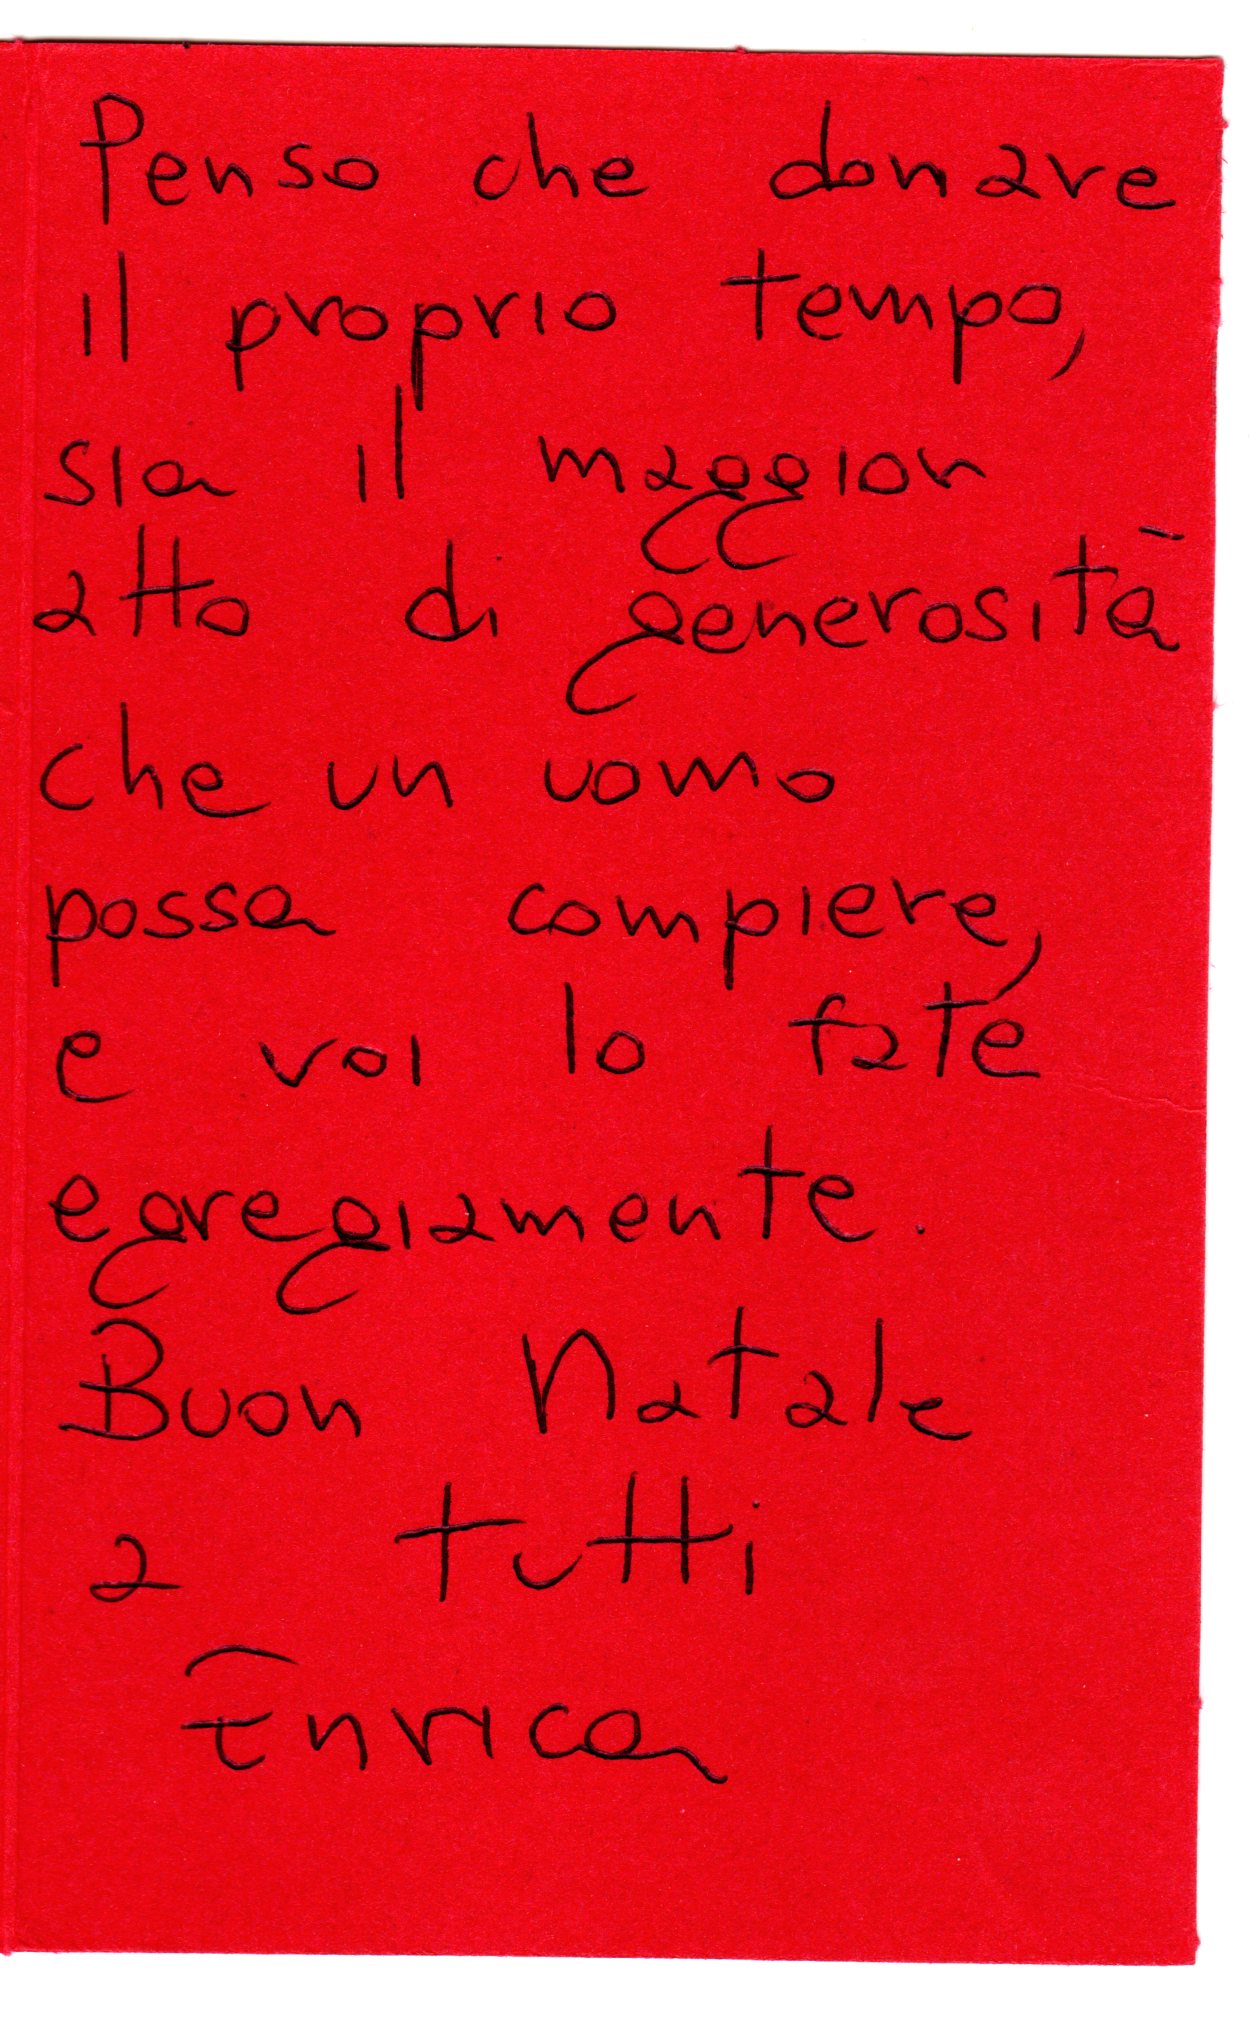 Penso che donare
il proprio tempo,
sia il maggior
atto di generosità
che un uomo
possa compiere,
e voi lo fate
egregiamente.
Buon Natale
a tutti
Enrica